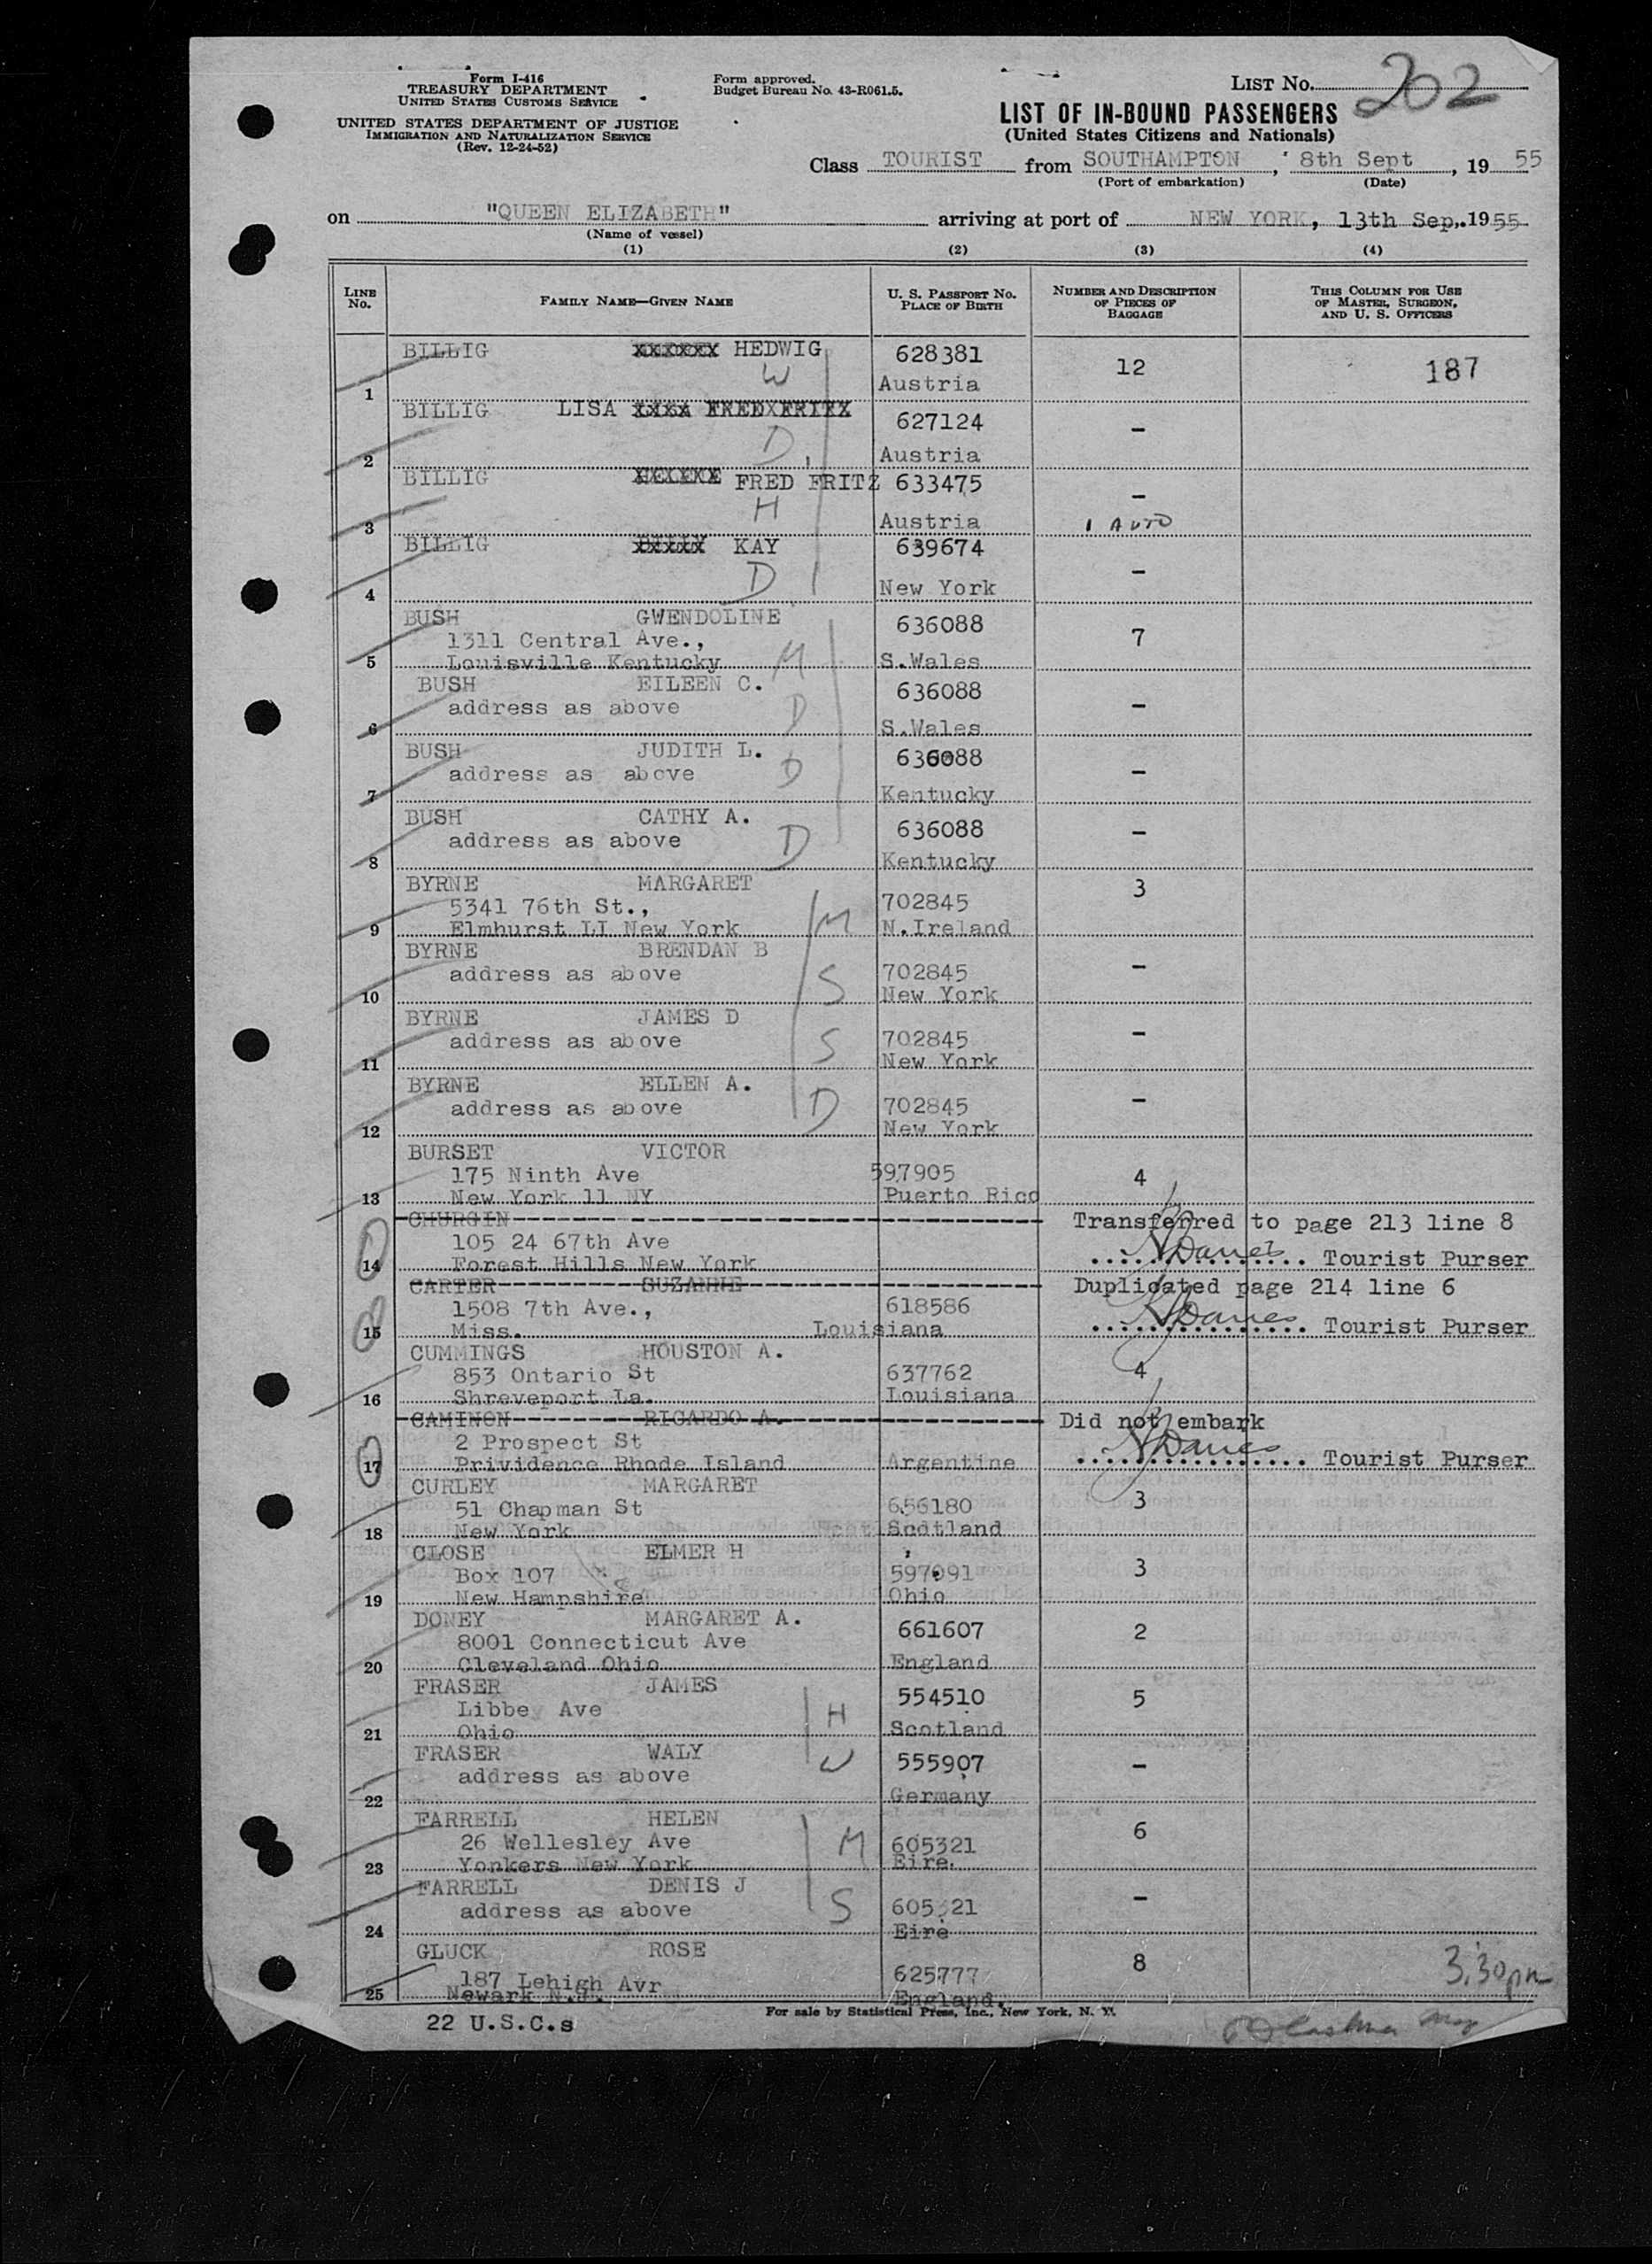 Form I-416
TREASURY DEPARTMENT
UNITED STATES CUSTOMS SERVICE
UNITED STATES DEPARTMENT OF JUSTICE
IMMIGRATION AND NATURALIZATION SERVICE
(Rev. 12-24-52)
Form approved.
Budget Bureau No. 43-R061.5.
LIST No. 202
LIST OF IN-BOUND PASSENGERS
(United States Citizens and Nationals)
Class TOURIST from SOUTHAMPTON, 8th Sept, 19 55
(Port of embarkation) (Date)
on "QUEEN ELIZABETH" arriving at port of NEW YORK, 13th Sep, 1955
(Name of vessel)
(1) (2) (3) (4)
LINE No. FAMILY NAME—GIVEN NAME U. S. PASSPORT No. PLACE OF BIRTH NUMBER AND DESCRIPTION OF PIECES OF BAGGAGE THIS COLUMN FOR USE OF MASTER, SURGEON, AND U. S. OFFICERS
BILLIG HEDWIG 628381 12 187
W Austria
1
BILLIG LISA 627124 -
D Austria
2
BILLIG FRED FRITZ 633475 -
H Austria 1 AUTO
3
BILLIG KAY 639674 -
D New York
4
BUSH GWENDOLINE 636088 7
1311 Central Ave.,
5 Louisville Kentucky M S.Wales
BUSH EILEEN C. 636088 -
address as above D
6 S.Wales
BUSH JUDITH L. 636088 -
address as above D
7 Kentucky
BUSH CATHY A. 636088 -
address as above D
8 Kentucky
BYRNE MARGARET 3
5341 76th St., 702845
9 Elmhurst LI New York M N.Ireland
BYRNE BRENDAN B -
address as above S 702845
10 New York
BYRNE JAMES D -
address as above S 702845
11 New York
BYRNE ELLEN A. -
address as above D 702845
12 New York
BURSET VICTOR
175 Ninth Ave 597905 4
13 New York 11 NY Puerto Rico
CHURGIN Transferred to page 213 line 8
105 24 67th Ave
14 Forest Hills New York Tourist Purser
CARTER SUZANNE Duplicated page 214 line 6
1508 7th Ave., 618586
15 Miss. Louisiana Tourist Purser
CUMMINGS HOUSTON A.
853 Ontario St 637762 4
16 Shreveport La. Louisiana
CAMINON RICARDO A. Did not embark
2 Prospect St
17 Prividence Rhode Island Argentine Tourist Purser
CURLEY MARGARET
51 Chapman St 656180 3
18 New York Scotland
CLOSE ELMER H
Box 107 597091 3
19 New Hampshire Ohio
DONEY MARGARET A. 661607 2
8001 Connecticut Ave
20 Cleveland Ohio England
FRASER JAMES 554510 5
Libbey Ave H
21 Ohio Scotland
FRASER WALY 555907 -
address as above W
22 Germany
FARRELL HELEN 6
26 Wellesley Ave M 605321
23 Yonkers New York Eire
FARRELL DENIS J -
address as above S 605321
24 Eire
GLUCK ROSE 8 3.30pm
187 Lehigh Avr 625777
25 Newark N.J. England.
For sale by Statistical Press, Inc., New York, N. Y.
22 U.S.C.s